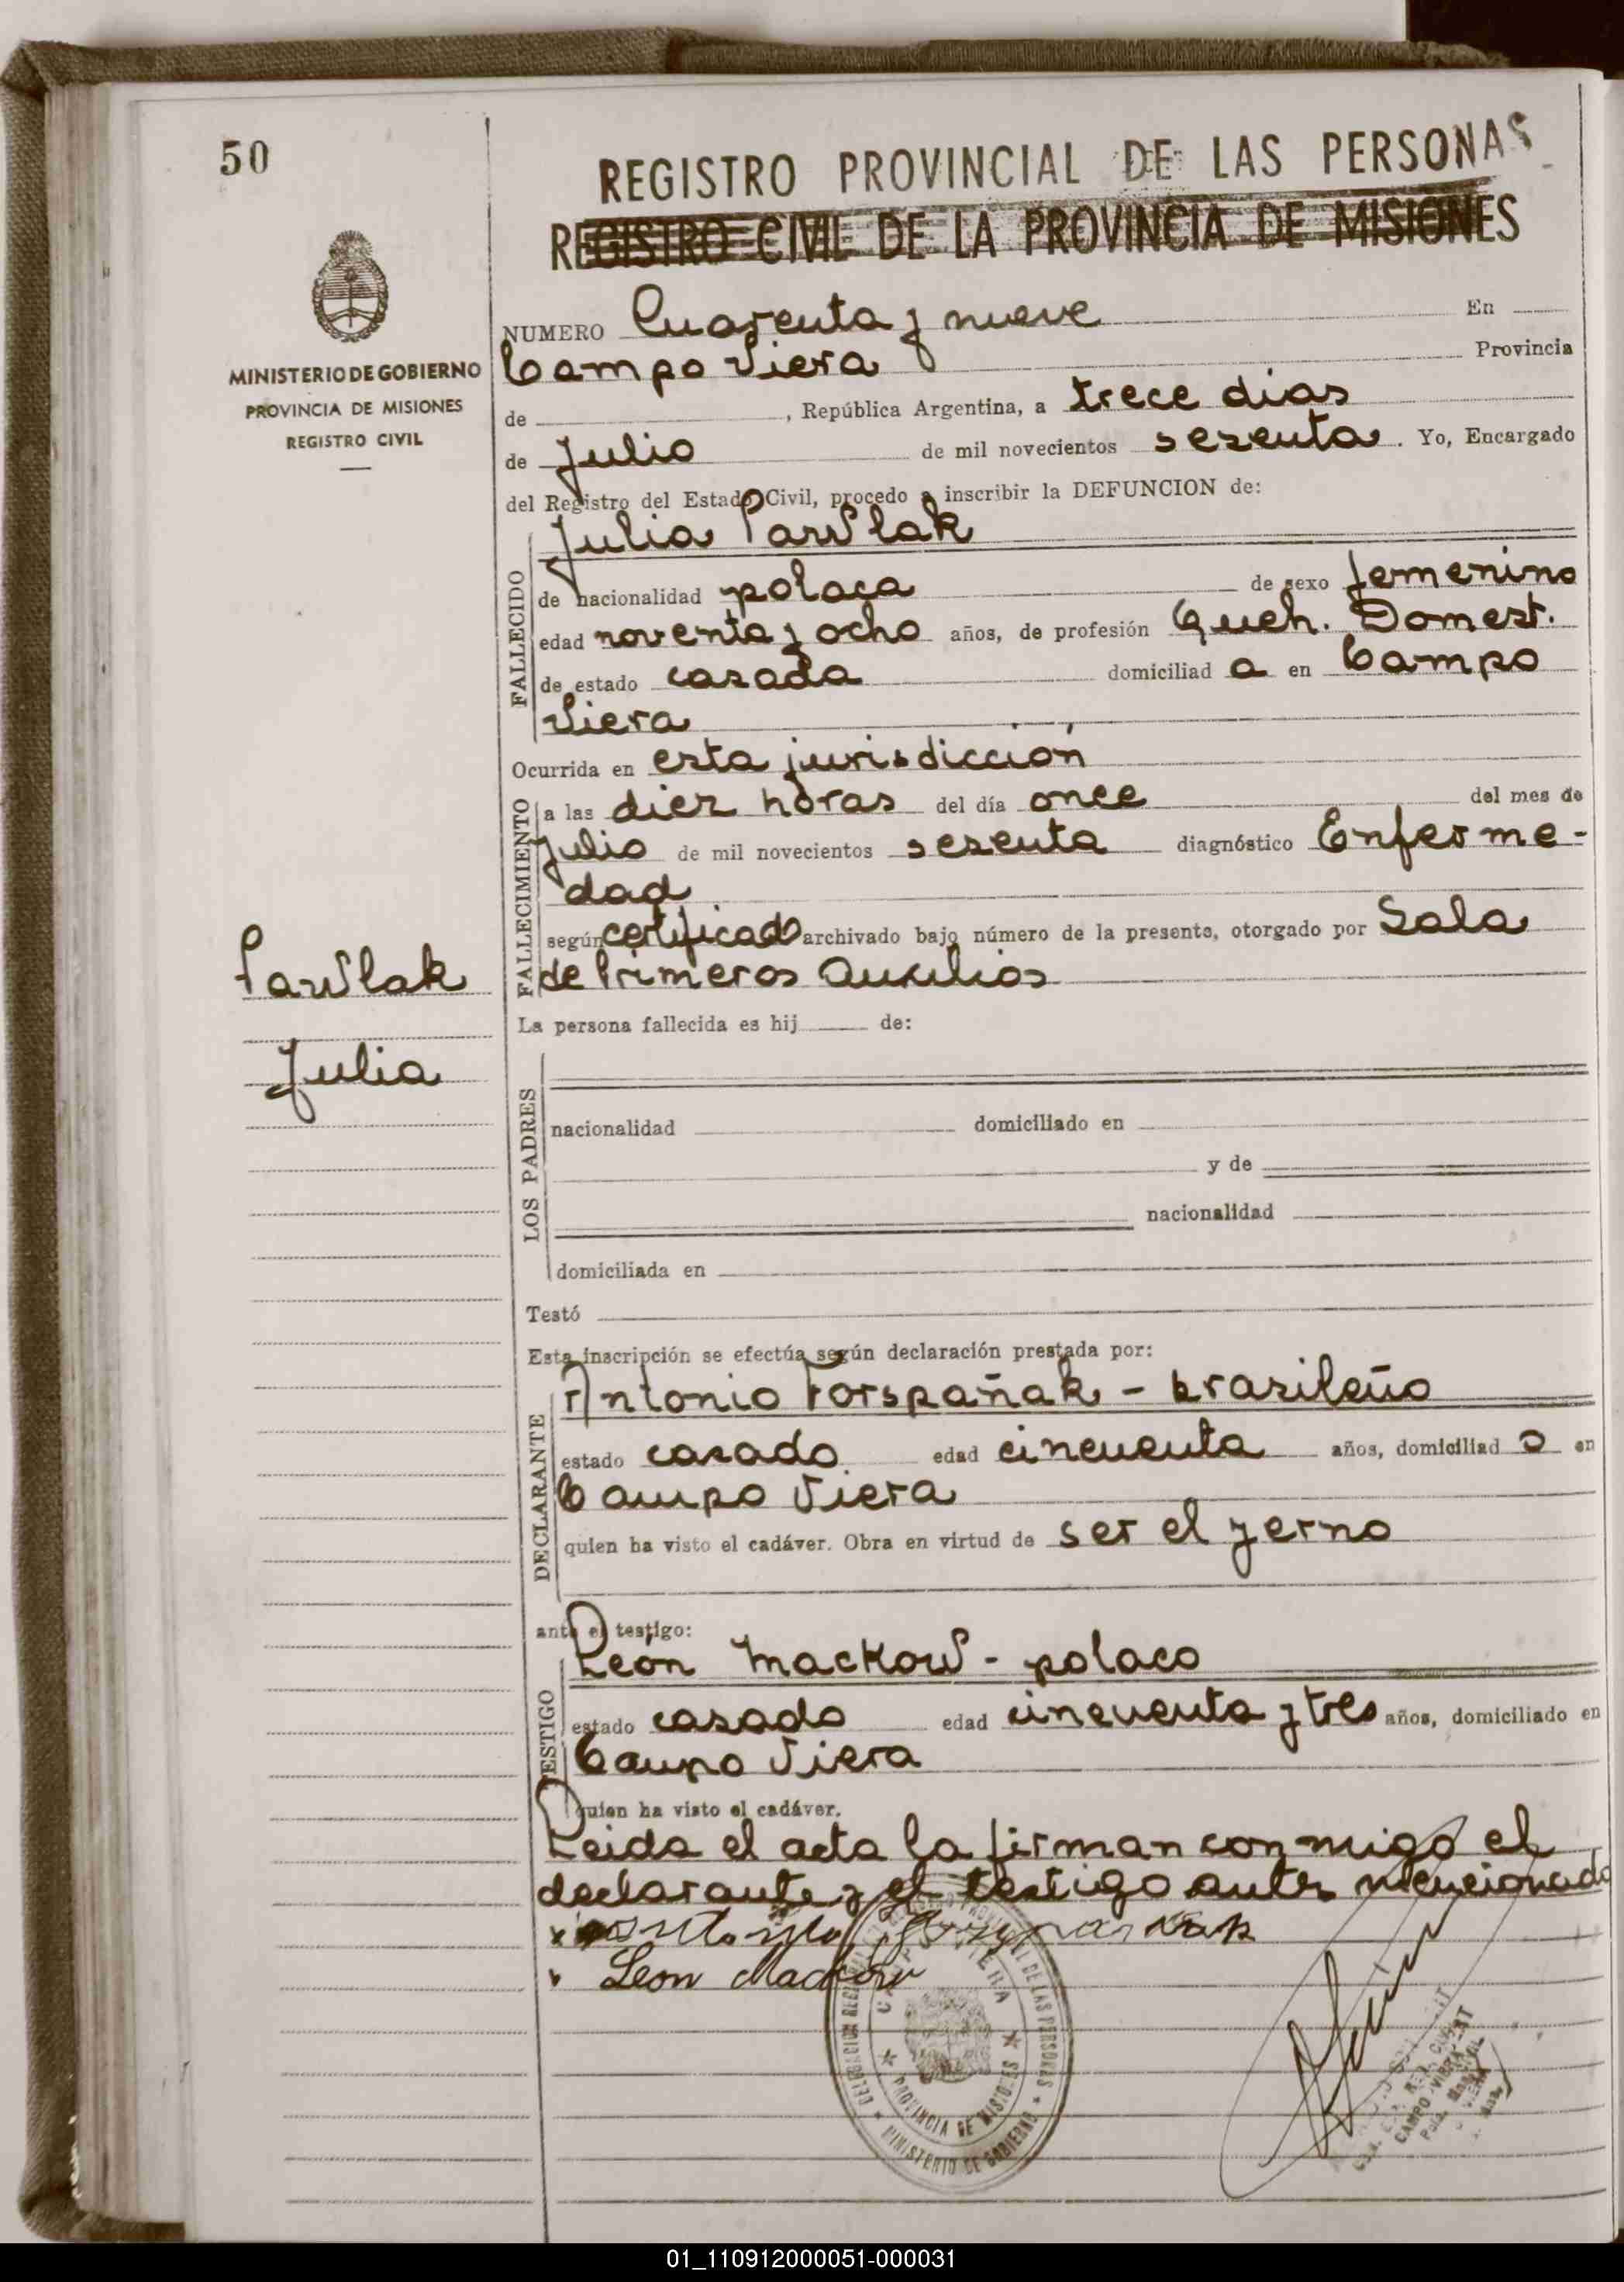 50
REGISTRO PROVINCIAL DE LAS PERSONAS
REGISTRO CIVIL DE LA PROVINCIA DE MISIONES
MINISTERIO DE GOBIERNO
PROVINCIA DE MISIONES
REGISTRO CIVIL
NUMERO Cuarenta y nueve En
Campo Viera Provincia
de , República Argentina, a trece dias
de Julio de mil novecientos sesenta. Yo, Encargado
del Registro del Estado Civil, procedo a inscribir la DEFUNCION de:
Julia Pawlak
FALLECIDO
de nacionalidad polaca de sexo femenino
edad noventa y ocho años, de profesión Queh. Domest.
de estado casada domiciliad a en Campo
Viera
Ocurrida en esta jurisdicción
FALLECIMIENTO
a las diez horas del día once del mes de
Julio de mil novecientos sesenta diagnóstico Enferme-
dad
según certificado archivado bajo número de la presente, otorgado por Sala
de Primeros Auxilios
Pawlak
Julia
La persona fallecida es hij de:
LOS PADRES
nacionalidad domiciliado en
y de
nacionalidad
domiciliada en
Testó
Esta inscripción se efectúa según declaración prestada por:
DECLARANTE
Antonio Forspañak - brasileño
estado casado edad cincuenta años, domiciliad o en
Campo Viera
quien ha visto el cadáver. Obra en virtud de ser el yerno
ante el testigo:
TESTIGO
León Mackow - polaco
estado casado edad cincuenta y tres años, domiciliado en
Campo Viera
quien ha visto el cadáver.
Leida el acta la firman conmigo el
declarante y el testigo antes mencionado
Leon Mackow
DE LAS PERSONAS
PROVINCIA DE MISIONES
MINISTERIO DE GOBIERNO
CAMPO VIERA
01_110912000051-000031